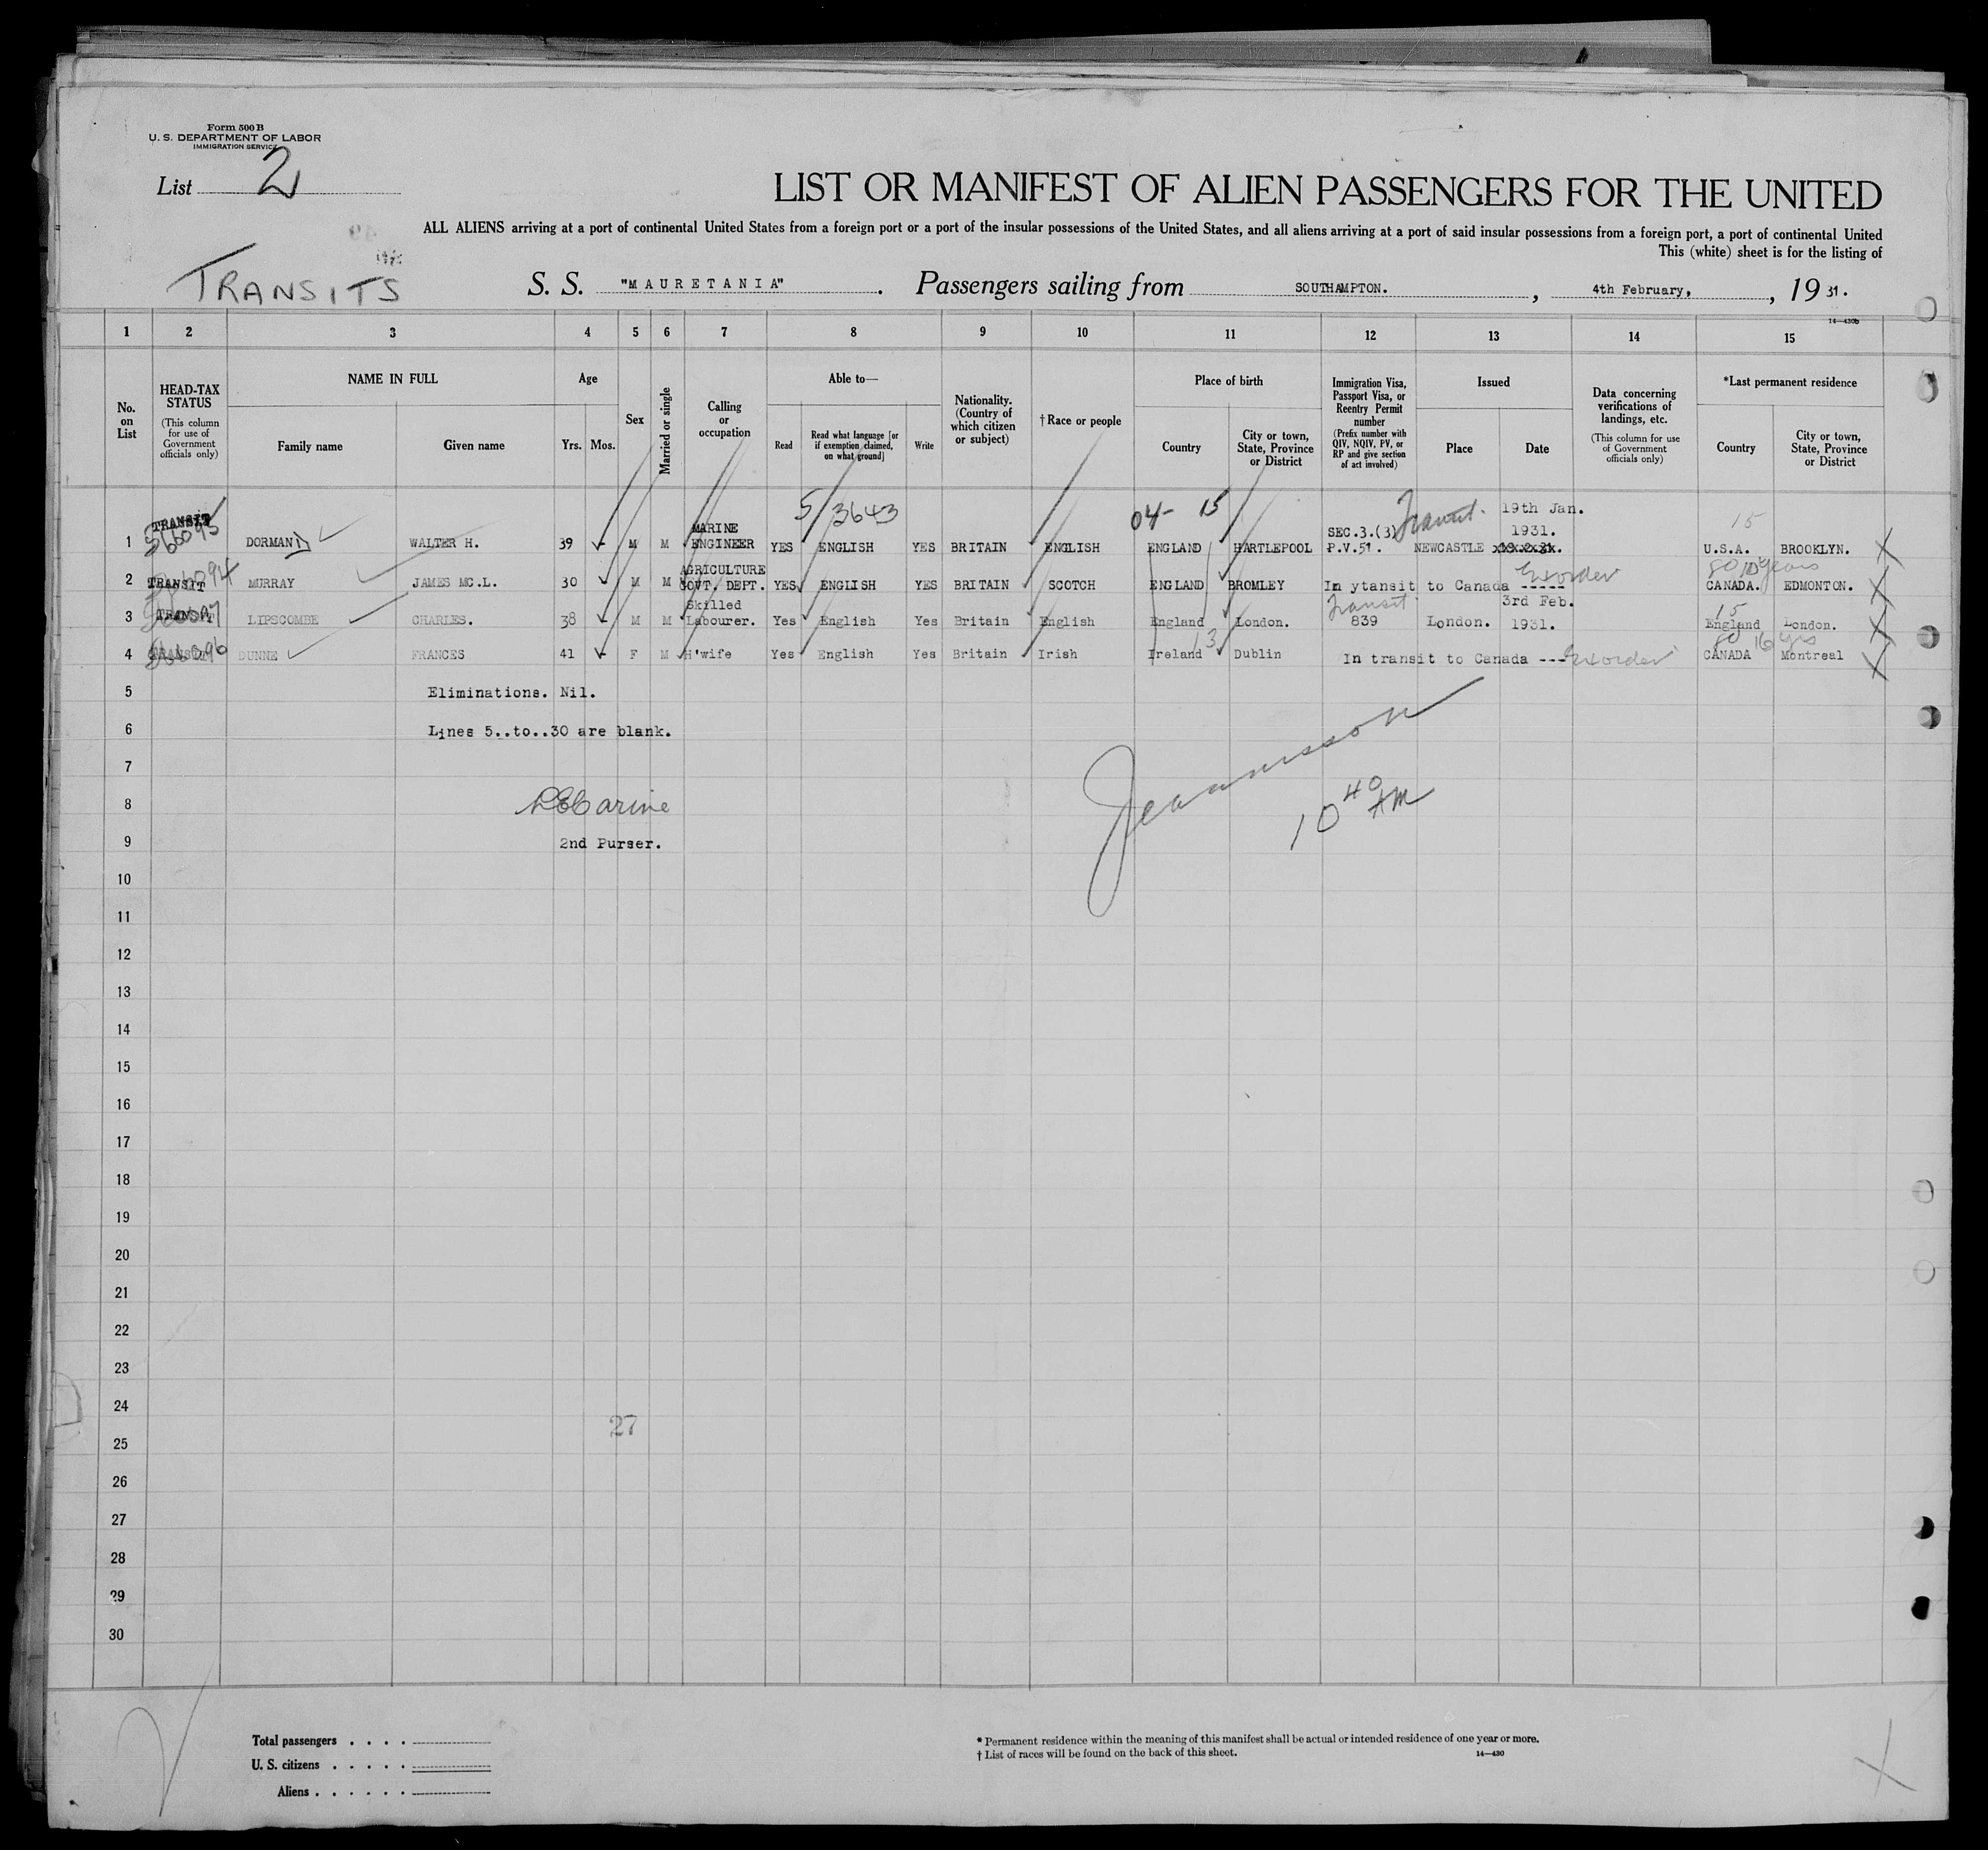 Form 500 B
U. S. DEPARTMENT OF LABOR
IMMIGRATION SERVICE
List 2
LIST OR MANIFEST OF ALIEN PASSENGERS FOR THE UNITED
ALL ALIENS arriving at a port of continental United States from a foreign port or a port of the insular possessions of the United States, and all aliens arriving at a port of said insular possessions from a foreign port, a port of continental United
This (white) sheet is for the listing of
TRANSITS
S. S. "MAURETANIA". Passengers sailing from SOUTHAMPTON., 4th February, , 19 31.
14—430b
1 2 3 4 5 6 7 8 9 10 11 12 13 14 15
No. on List
HEAD-TAX STATUS
(This column for use of Government officials only)
NAME IN FULL
Family name
Given name
Age
Yrs.
Mos.
Sex
Married or single
Calling or occupation
Able to—
Read
Read what language [or if exemption claimed, on what ground]
Write
Nationality. (Country of which citizen or subject)
†Race or people
Place of birth
Country
City or town, State, Province or District
Immigration Visa, Passport Visa, or Reentry Permit number
(Prefix number with QIV, NQIV, PV, or RP and give section of act involved)
Issued
Place
Date
Data concerning verifications of landings, etc.
(This column for use of Government officials only)
*Last permanent residence
Country
City or town, State, Province or District
5/3643 04- 15
1 TRANSIT DORMAND WALTER H. 39 M M MARINE ENGINEER YES ENGLISH YES BRITAIN ENGLISH ENGLAND HARTLEPOOL SEC.3.(3) P.V.51. Transit. NEWCASTLE 19th Jan. 1931. 15 U.S.A. BROOKLYN.
2 TRANSIT MURRAY JAMES MC.L. 30 M M AGRICULTURE GOVT. DEPT. YES ENGLISH YES BRITAIN SCOTCH ENGLAND BROMLEY In ytansit to Canada ----- 80 10 years CANADA. EDMONTON.
3 TRANSIT LIPSCOMBE CHARLES. 38 M M Skilled Labourer. Yes English Yes Britain English England London. Transit 839 London. 3rd Feb. 1931. 15 England London.
4 TRANSIT DUNNE FRANCES 41 F M H'wife Yes English Yes Britain Irish Ireland 13 Dublin In transit to Canada --- 80 16 yrs CANADA Montreal
5 Eliminations. Nil.
6 Lines 5..to..30 are blank.
7
8
9 2nd Purser.
10 40 AM
10
11
12
13
14
15
16
17
18
19
20
21
22
23
24
27
25
26
27
28
29
30
Total passengers . . . .
U. S. citizens . . . . .
Aliens . . . . . .
* Permanent residence within the meaning of this manifest shall be actual or intended residence of one year or more.
† List of races will be found on the back of this sheet. 14—430